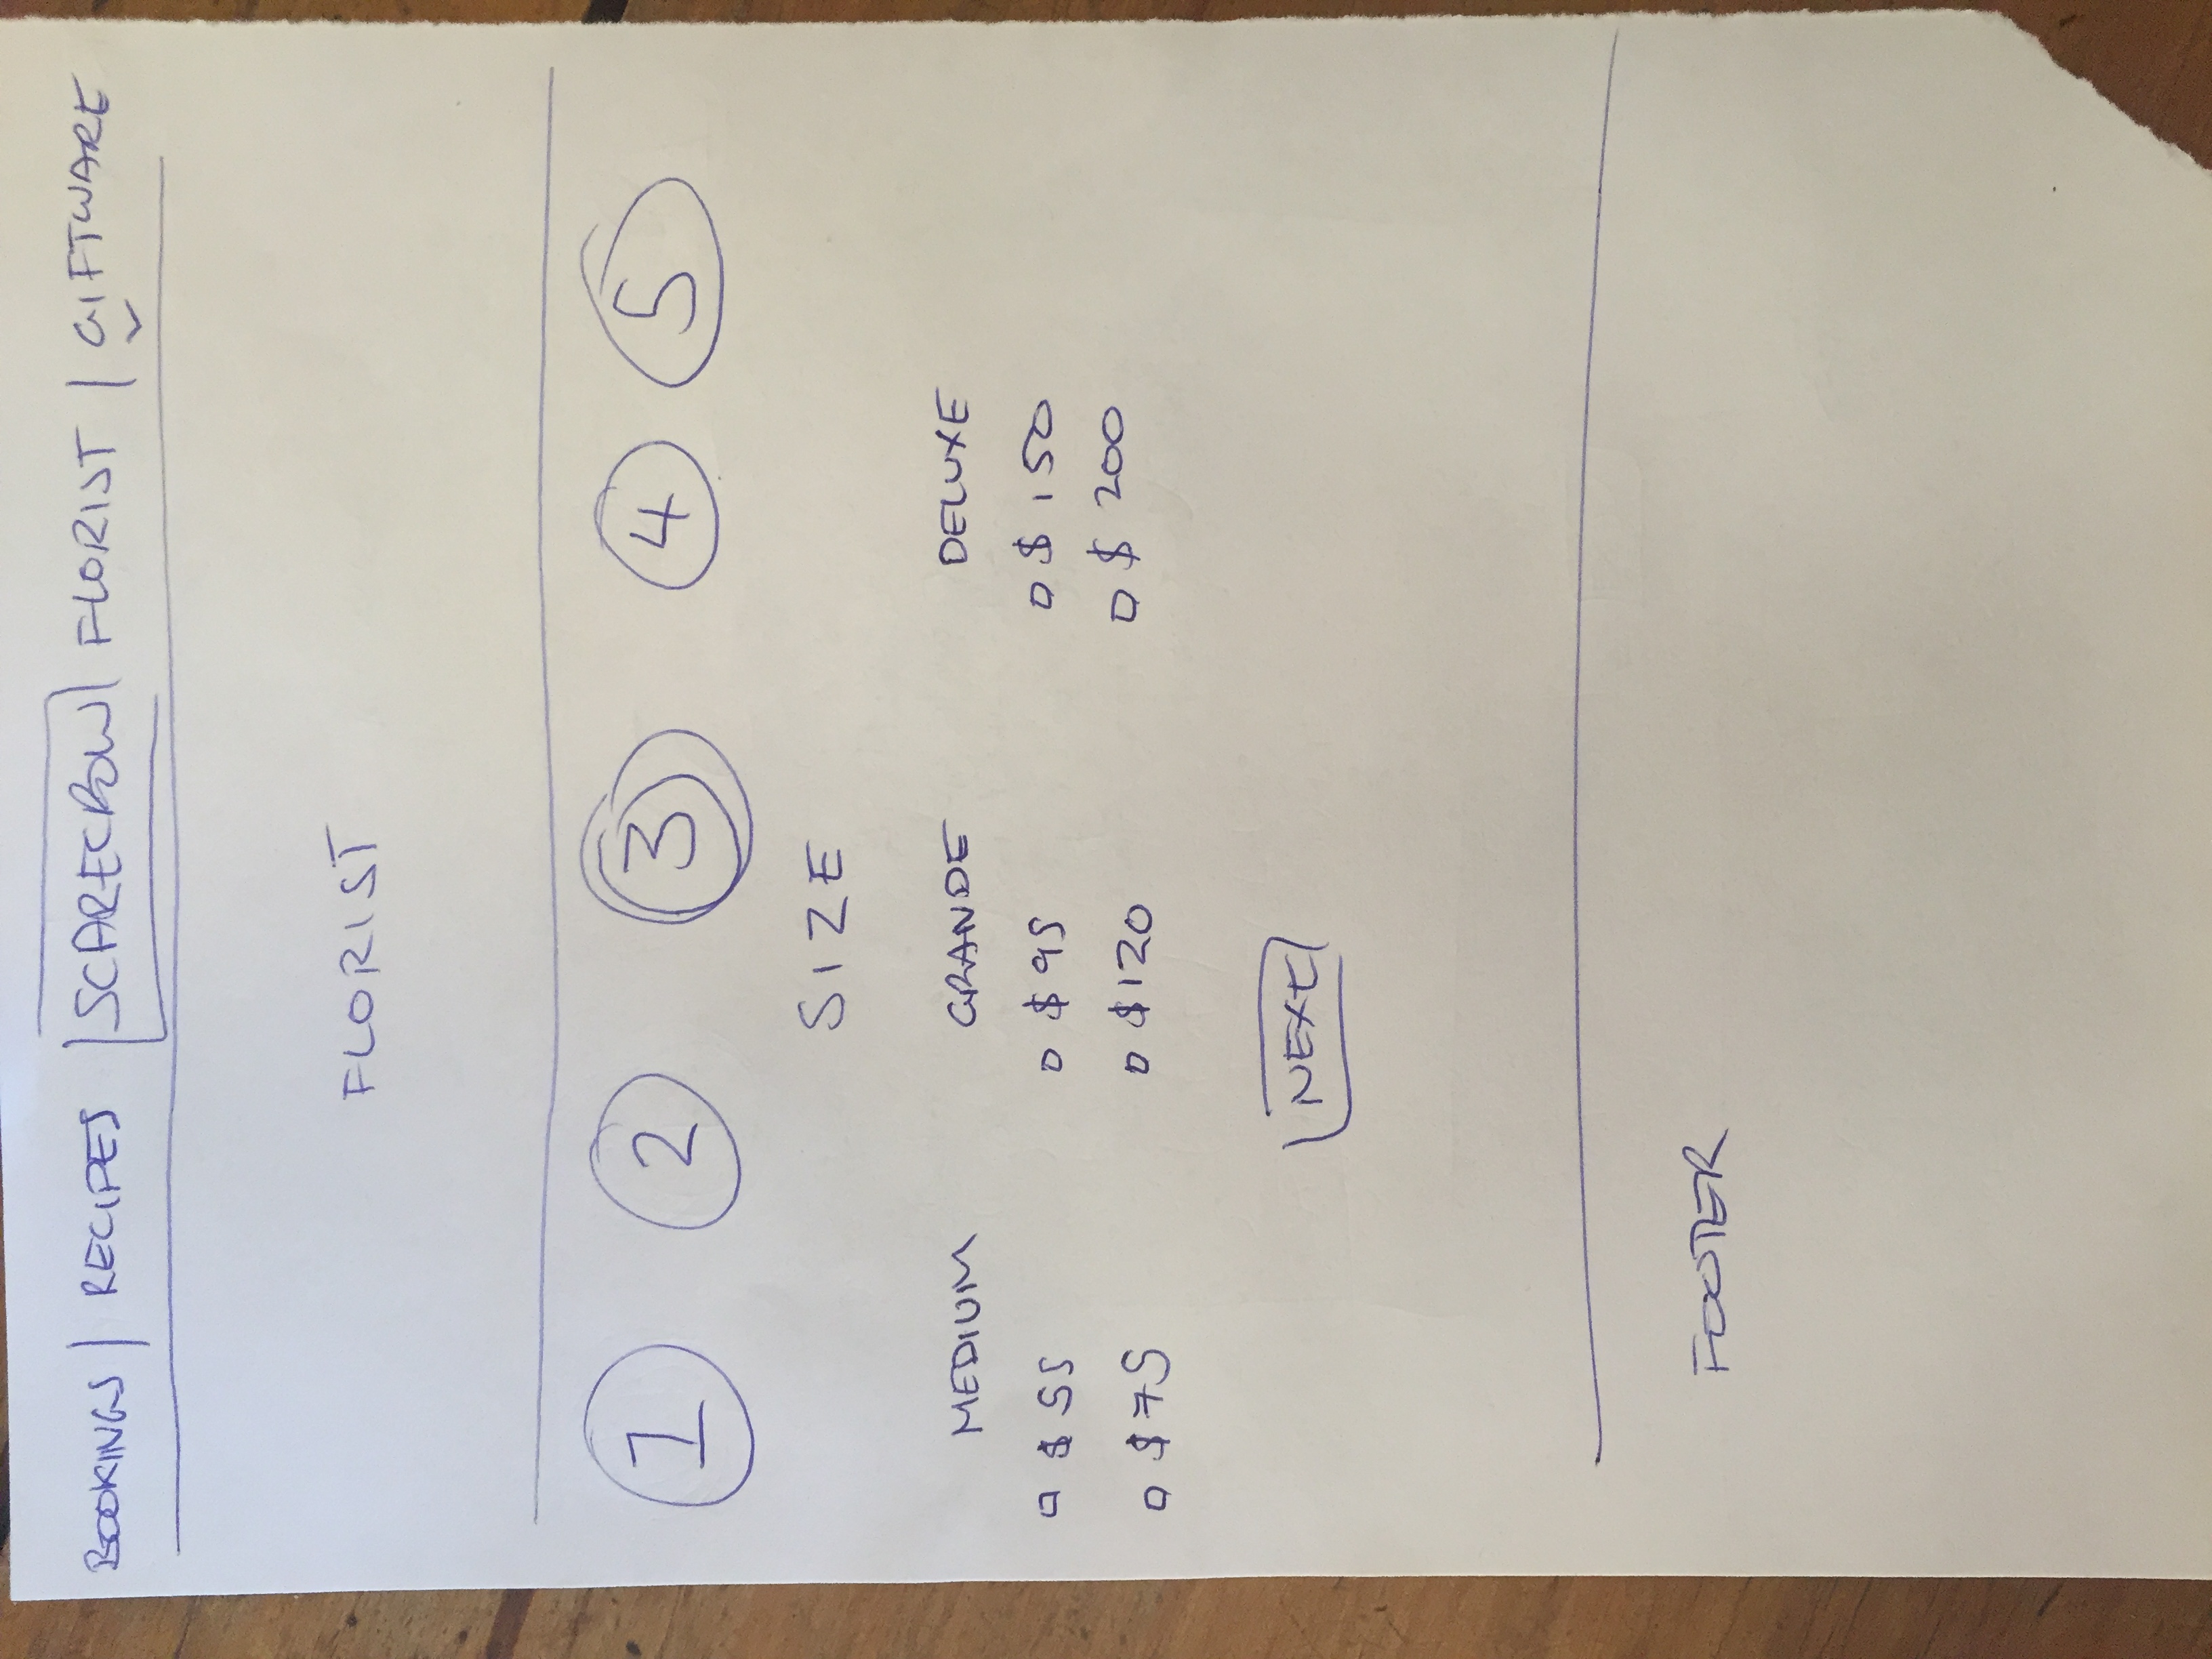 BOOKINGS | RECIPES | SCARECROW | FLORIST | GIFTWARE
FLORIST
1 2 3 4 5
SIZE
MEDIUM GRANDE DELUXE
$55 $95 $150
$75 $120 $200
NEXT
FOOTER